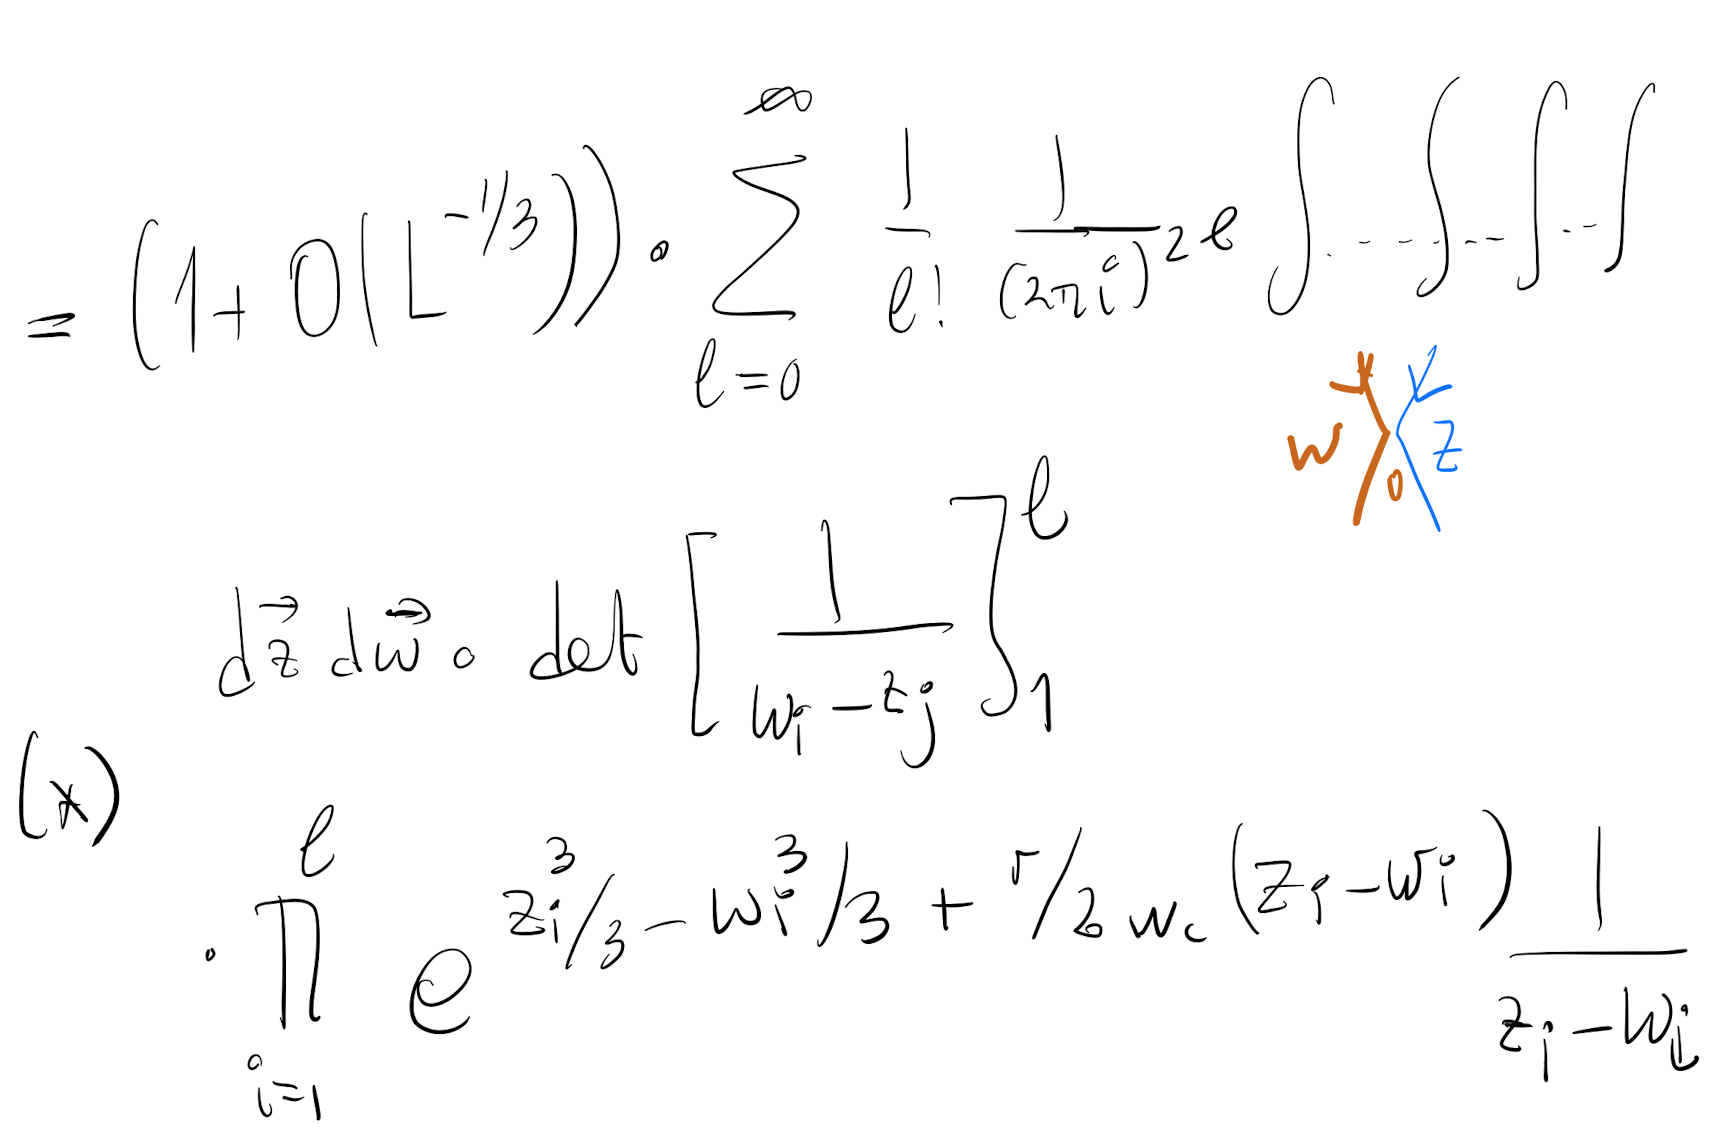 = (1 + O(L^{-1/3})) · \sum_{l=0}^{∞} \frac{1}{l!} \frac{1}{(2πi)^{2l}} ∫ .... ∫ ... ∫ ... ∫
w 0 z
d\vec{z} d\vec{w} · det [ \frac{1}{w_i - z_j} ]_1^l
(*)
· \prod_{i=1}^{l} e^{z_i^3/3 - w_i^3/3 + r/2 w_c (z_i - w_i)} \frac{1}{z_i - w_i}